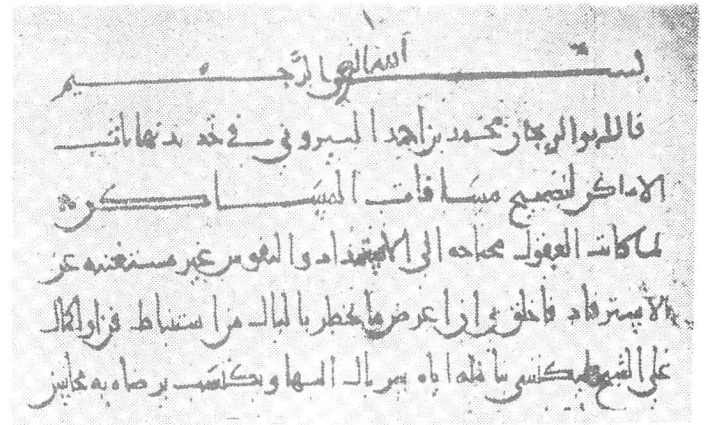 بسم الله الرحمن الرحيم
قال ابو الريحان محمد بن احمد البيروني في تحديد نهايات
الاماكن لتصحيح مسافات المساكن
لما كانت العقول محتاجه الى الاستمداد والنفوس غير مستغنيه عن
الاسترفاد فاخلق بي ان اعرض ما يخطر بالبال من استنباط
على الشيخ اياه سربال البها ويكتسب برضاه به محاسن